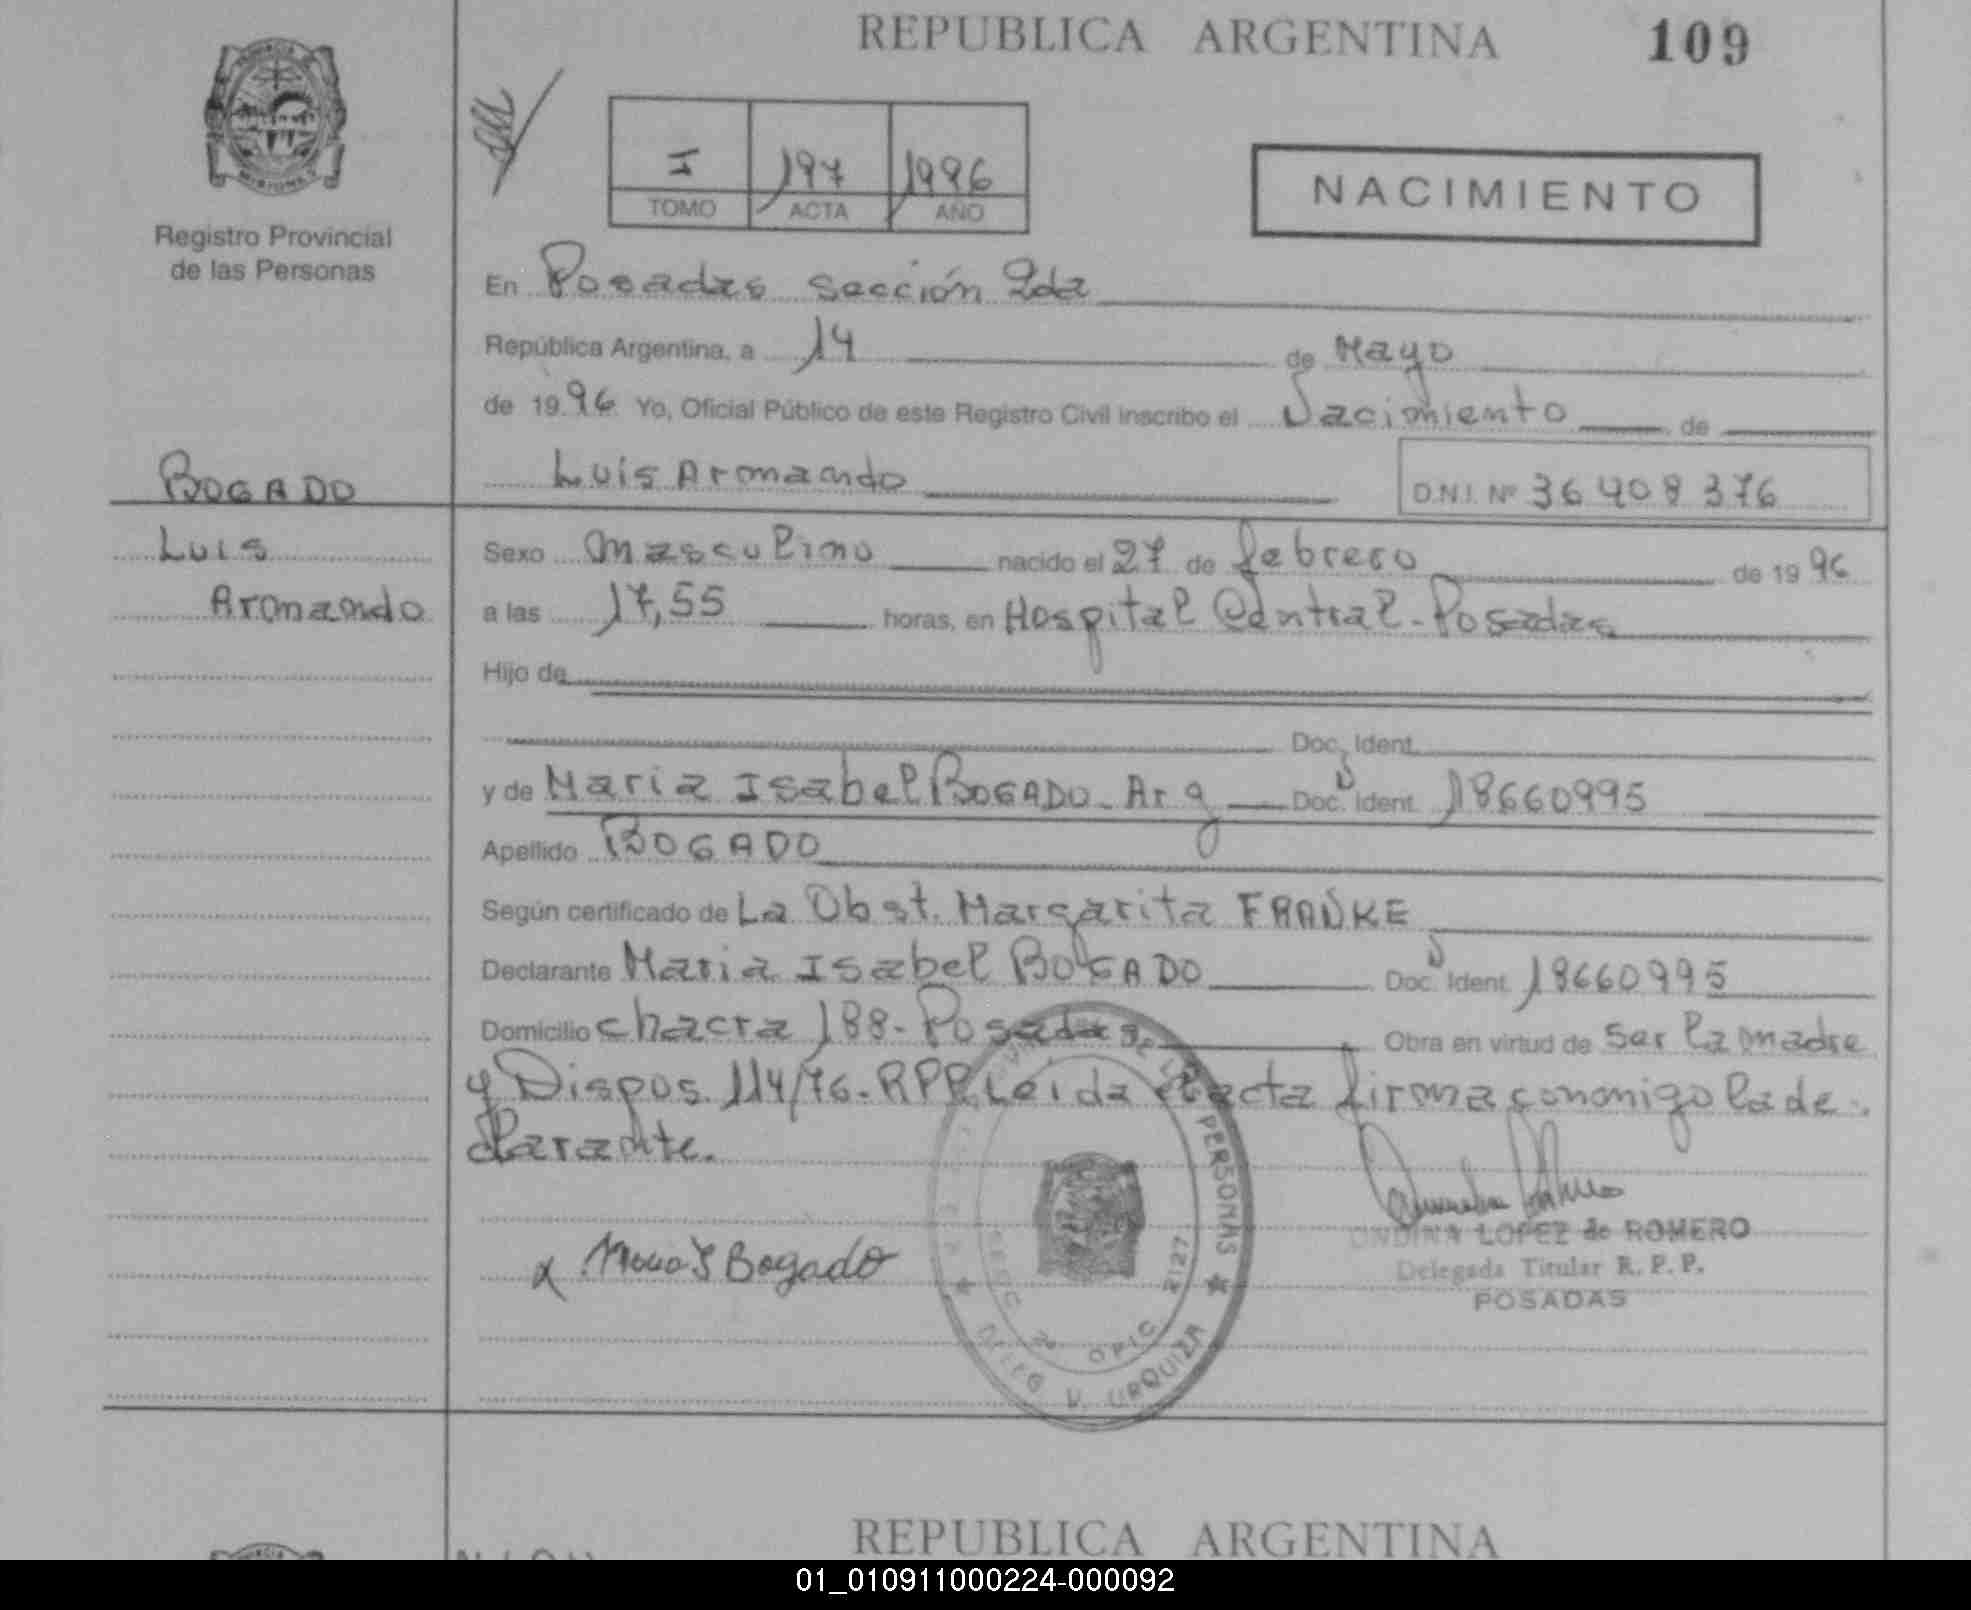 REPUBLICA ARGENTINA 109
Registro Provincial
de las Personas
I 197 1996
TOMO ACTA AÑO
NACIMIENTO
En Posadas sección 2da
República Argentina, a 14 de Mayo
de 1996 Yo, Oficial Público de este Registro Civil inscribo el Nacimiento de
BOGADO
Luis Armando
D.N.I. Nº 36 408 376
Luis
Armando
Sexo masculino nacido el 27 de febrero de 1996
a las 17,55 horas, en Hospital Central - Posadas
Hijo de
Doc. Ident.
y de Maria Isabel BOGADO - Arg Doc. N Ident. 18660995
Apellido BOGADO
Según certificado de La Obst. Margarita FRANKE
Declarante Maria Isabel BOGADO Doc. N Ident. 18660995
Domicilio chacra 188 - Posadas Obra en virtud de ser la madre
y Dispos. 114/76 - RPP. Leida el acta firma conmigo la de-
clarante.
x Maria I Bogado
PERSONAS
2127
OFIC
DELEG V. URQUIZA
ONDINA LOPEZ de ROMERO
Delegada Titular R. P. P.
POSADAS
REPUBLICA ARGENTINA
01_010911000224-000092